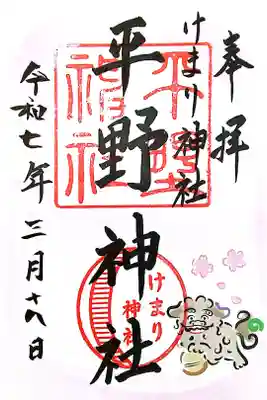 奉拝
けまり神社
平野神社
平野
神社
けまり
神社
令和七年三月十八日